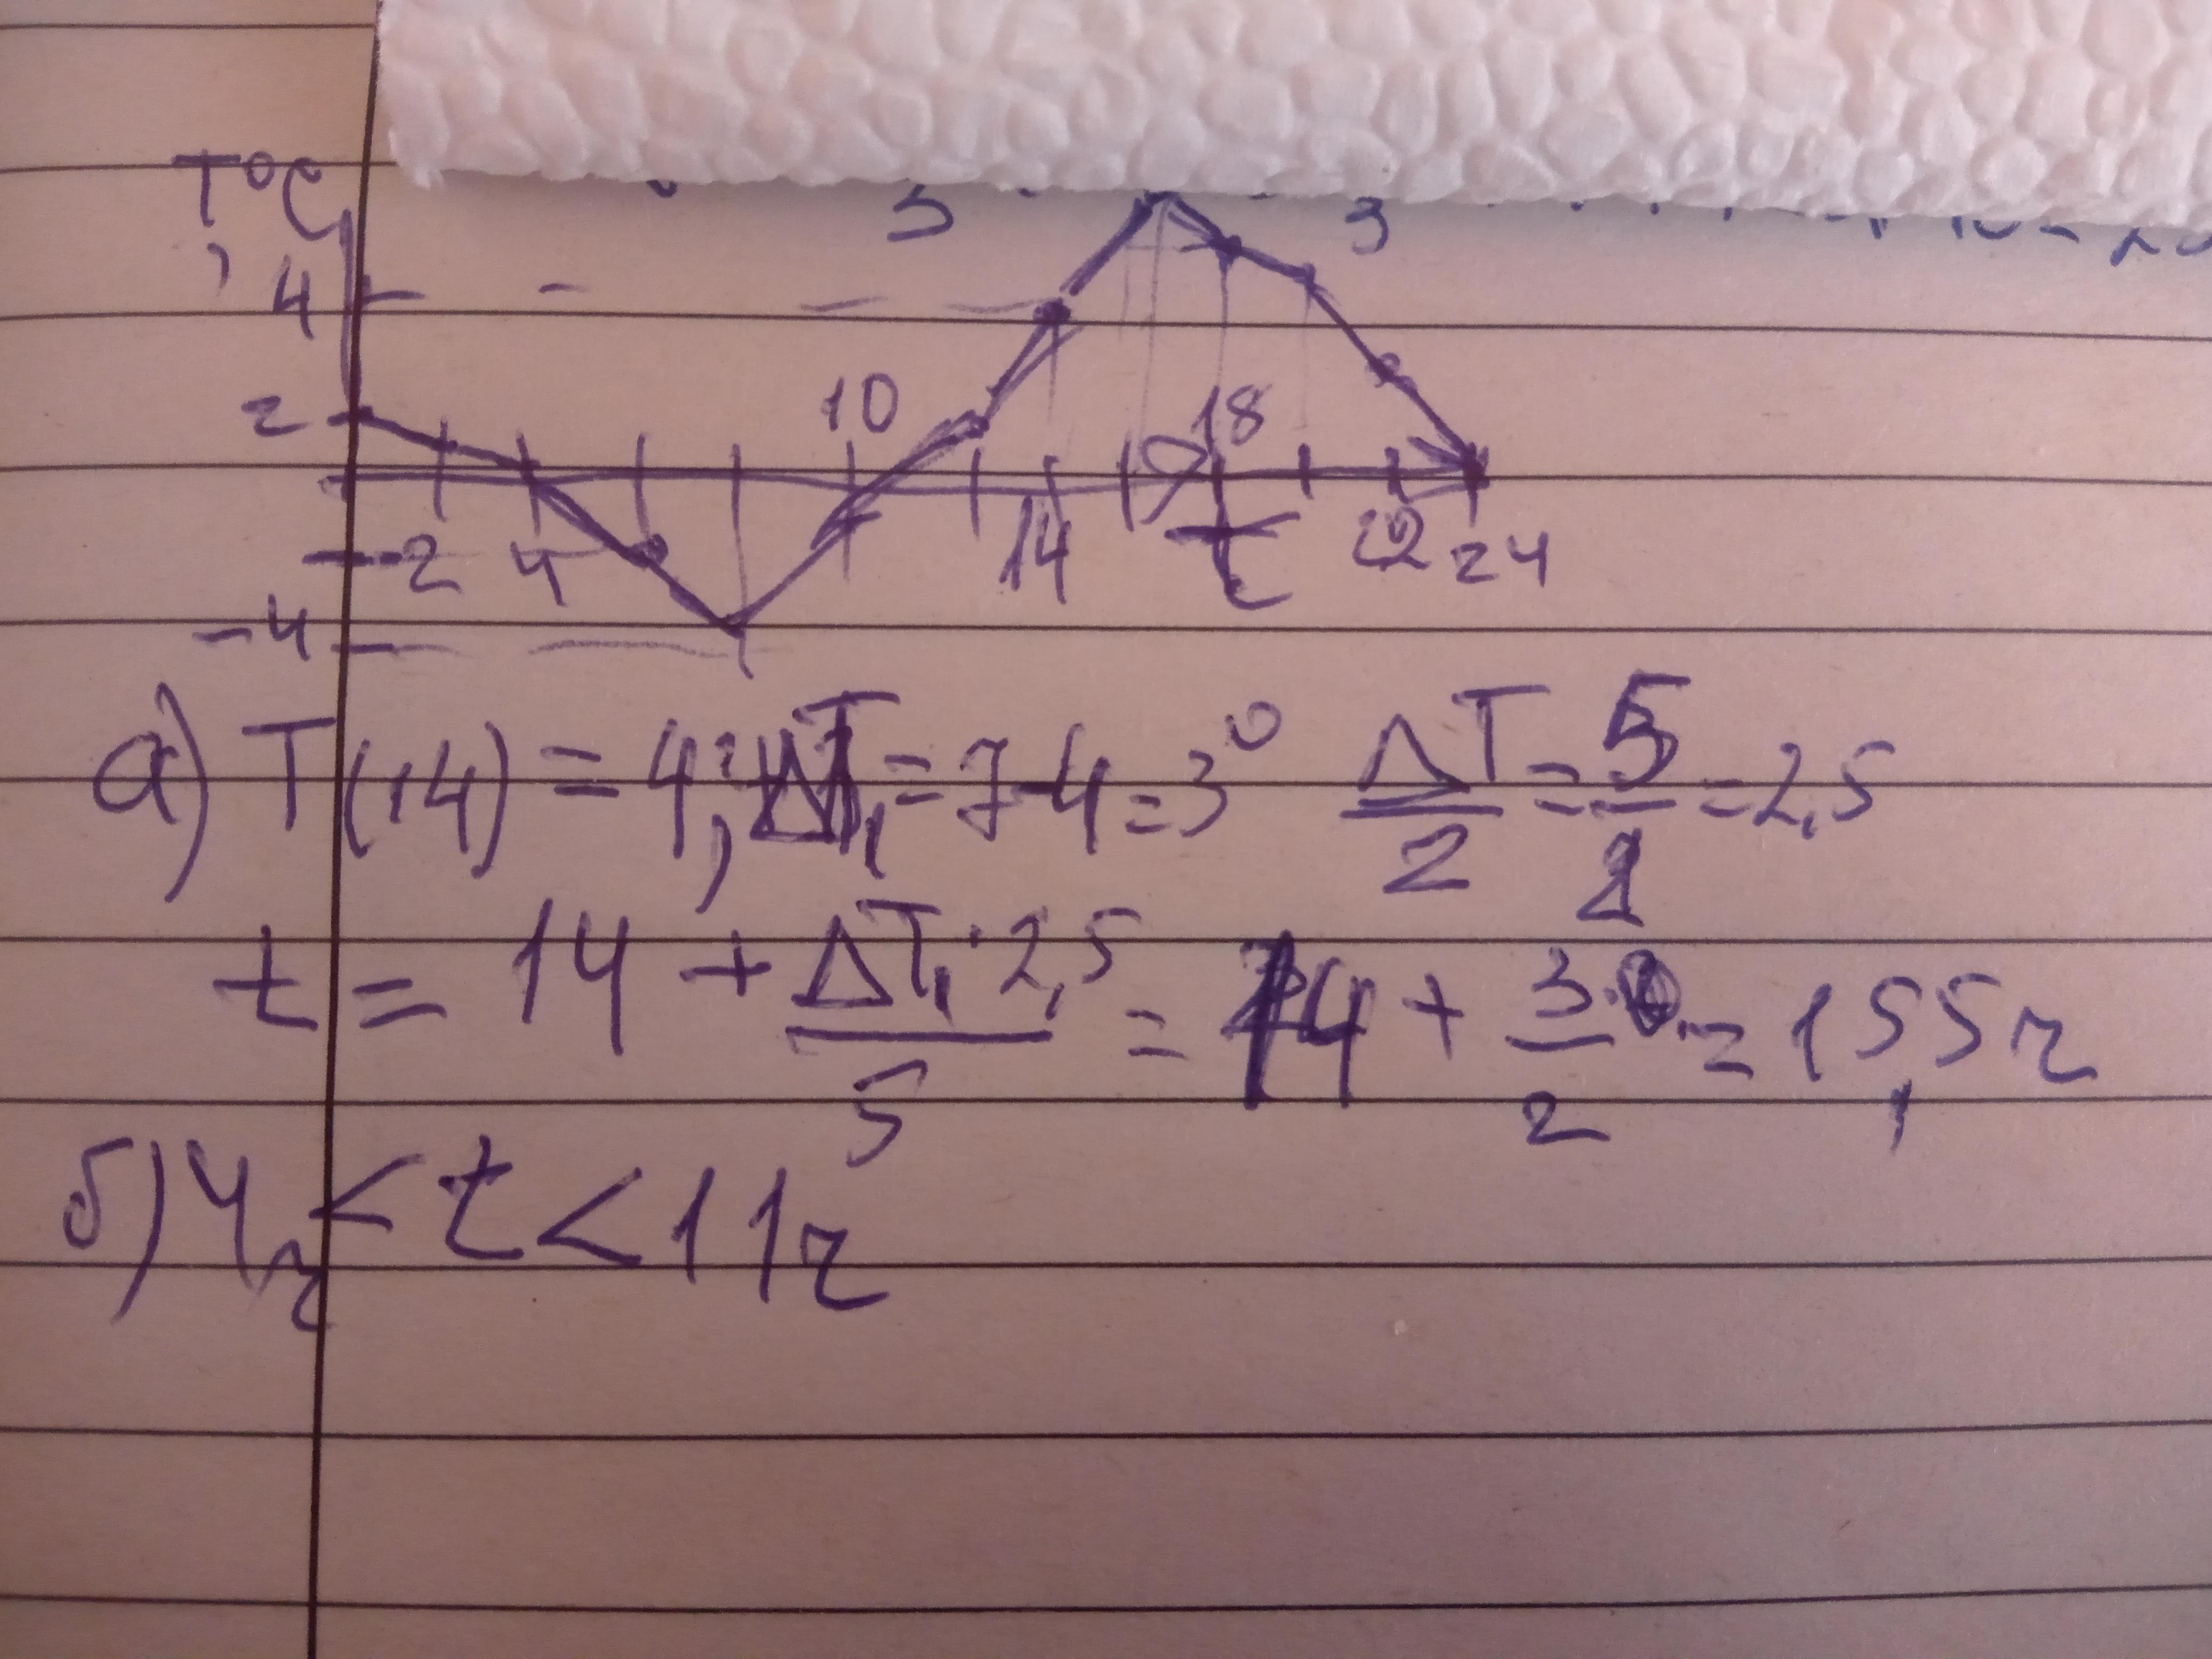 T°C
5 3
4
2
10 18
-2 4 14 t 22 24
-4
а) T(14) = 4; ΔT₁ = 7-4 = 3° ΔT/2 = 5/2 = 2,5
t = 14 + ΔT₁·2,5/5 = 14 + 3/2 = 15,5 г
б) 4 г < t < 11 г